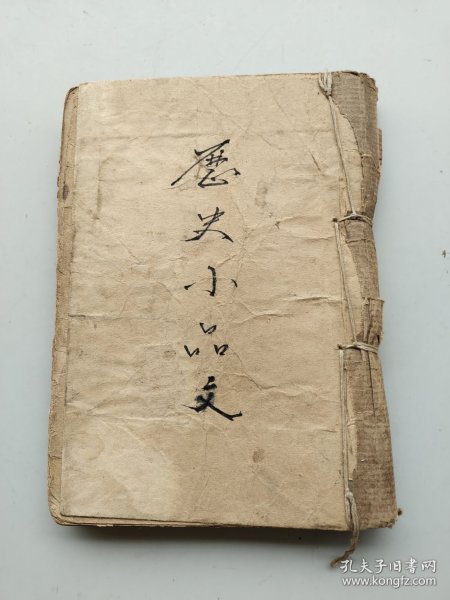 歷史小品文
孔夫子旧书网
www.kongfz.com